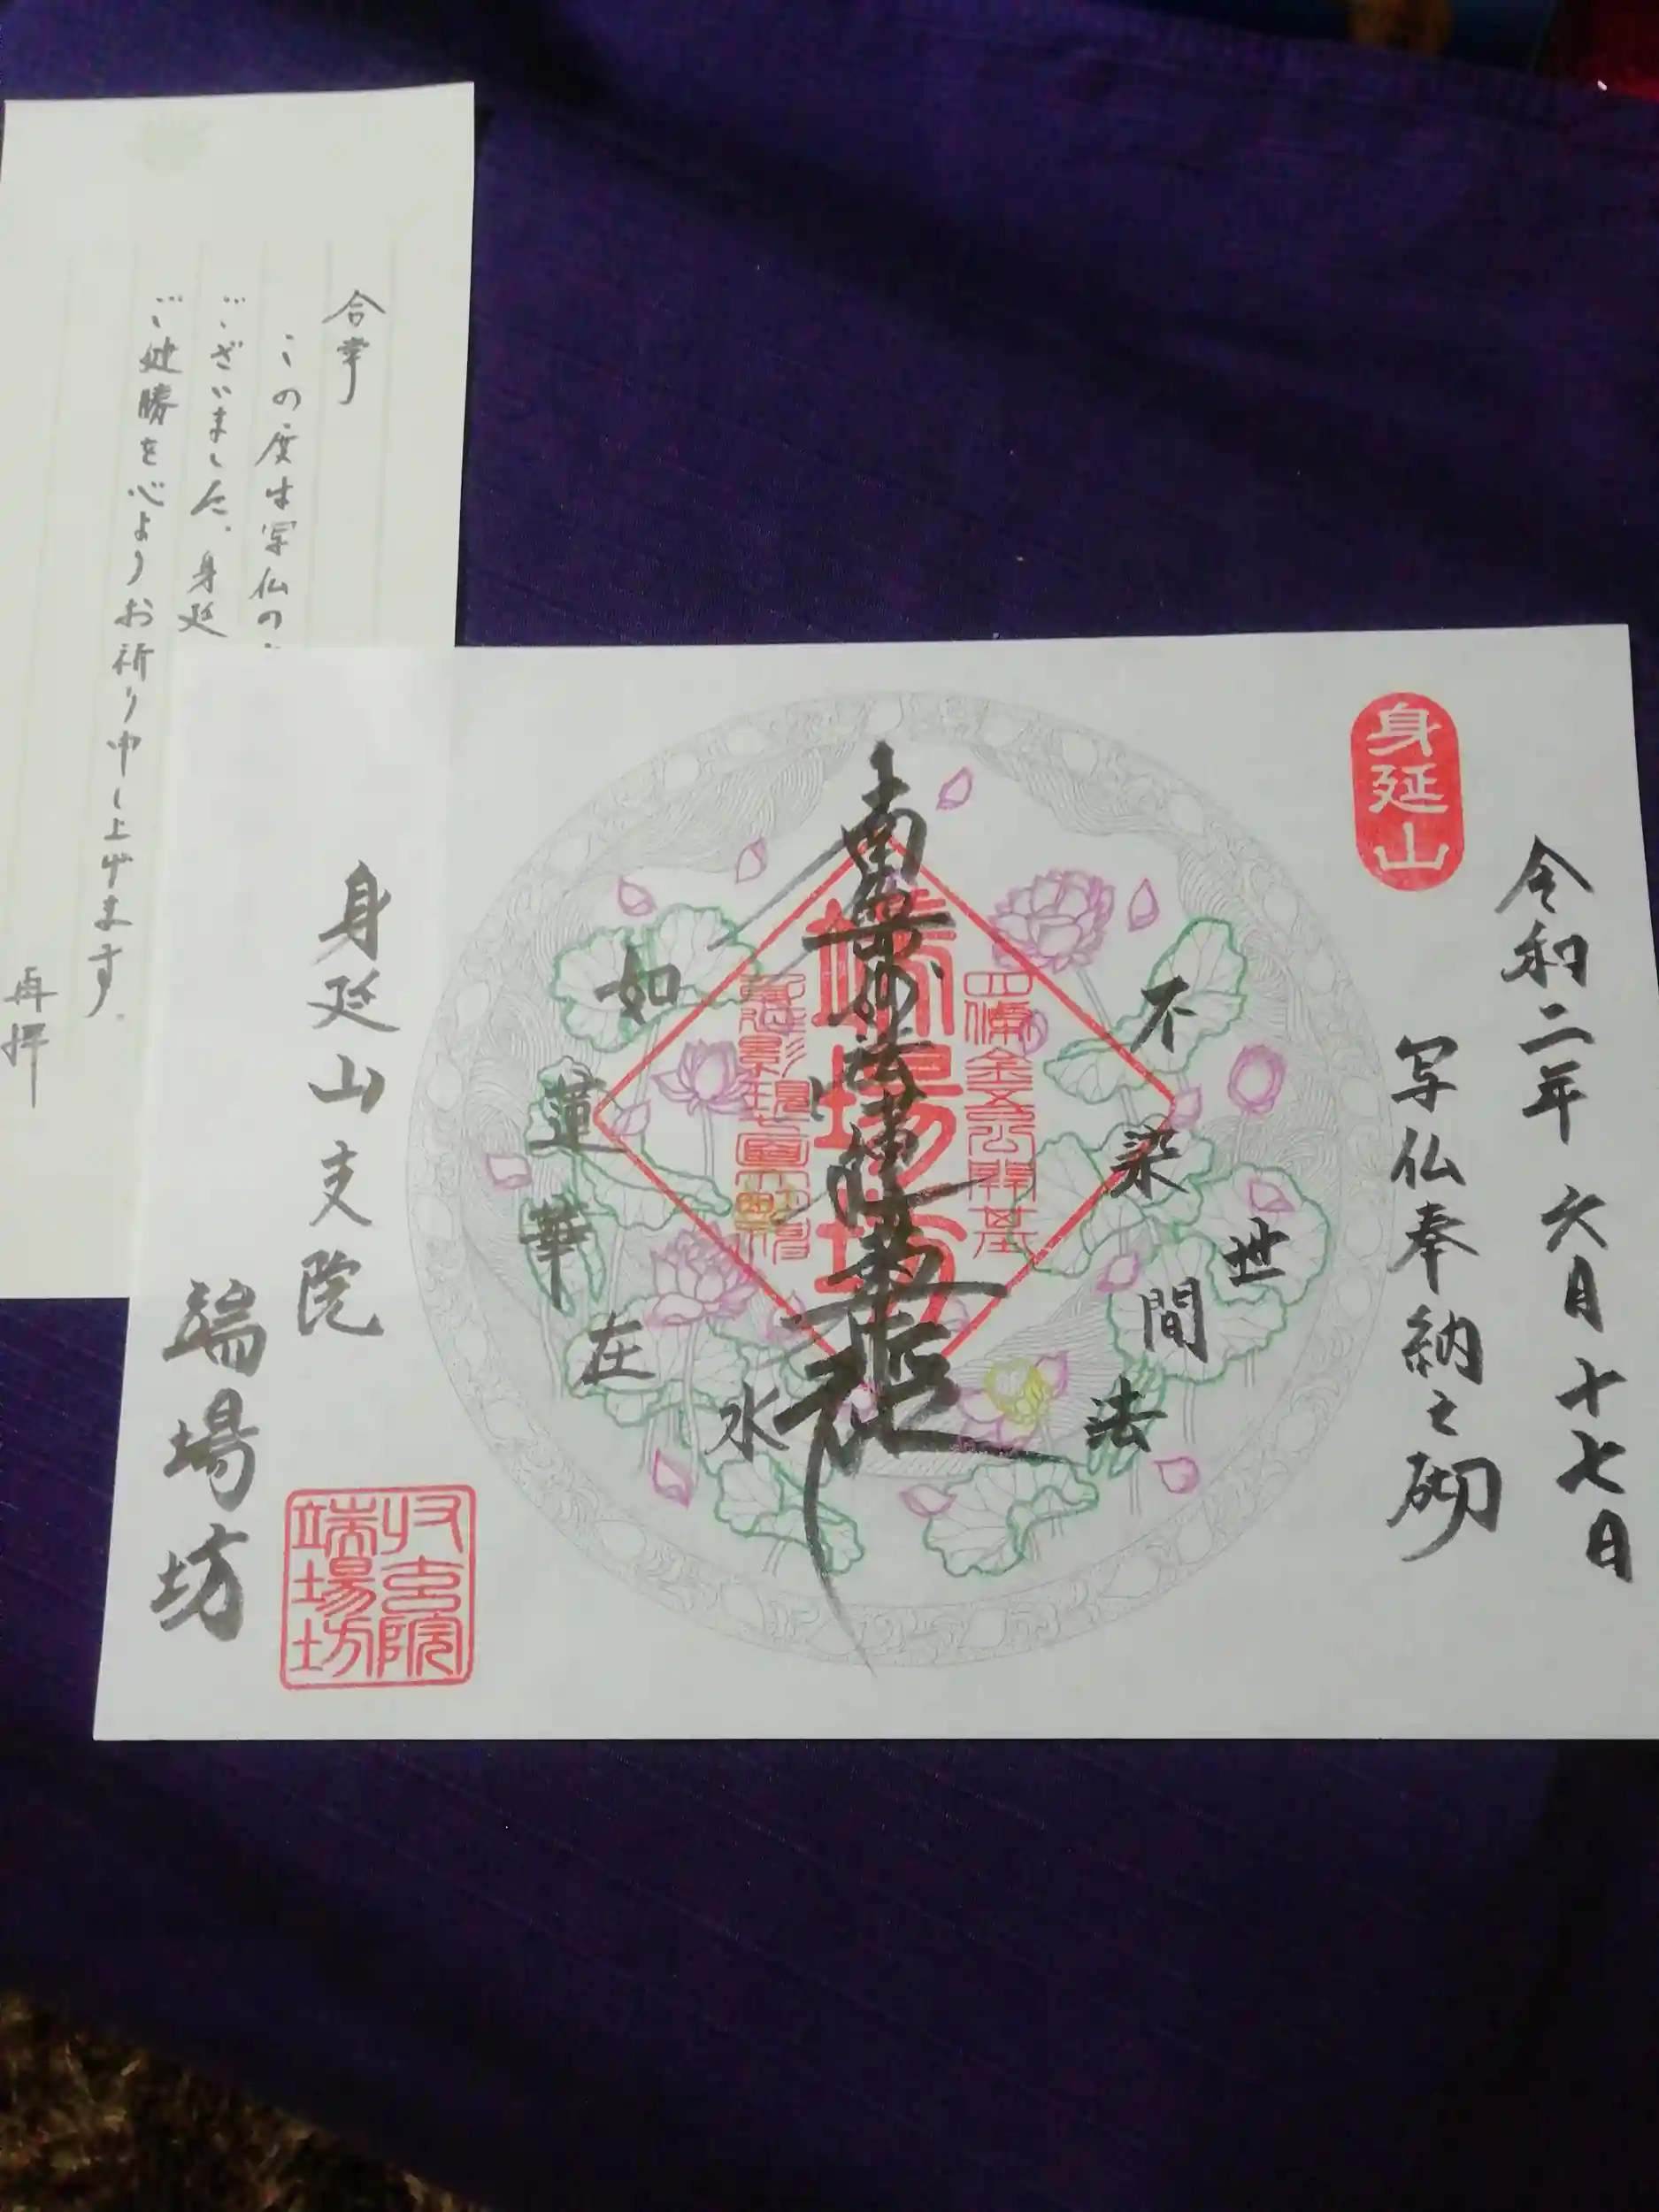 身延山
令和二年 六月十七日
写仏奉納之砌
不染世間法
如蓮華在水
南無妙法蓮華経
四條金吾公開基
端場坊
身延山支院
端場坊
端場坊
合掌
この度は写仏の
ございました。身延
ご健勝を心よりお祈り申し上げます。
再拝